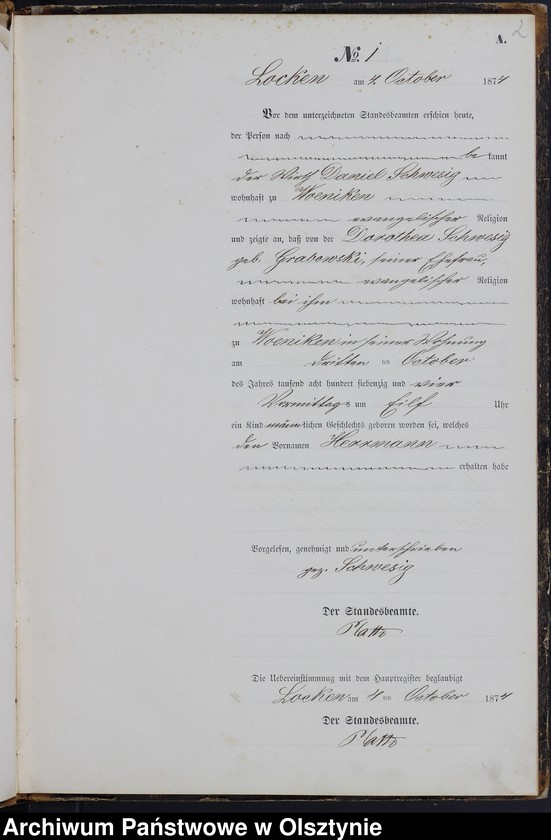 2
A.
№ 1
Locken am 4. October 1874
Vor dem unterzeichneten Standesbeamten erschien heute,
der Person nach
be kannt
der Wirth Daniel Schwesig
wohnhaft zu Woeniken
evangelischer Religion
und zeigte an, daß von der Dorothea Schwesig
geb. Grabowski, seiner Ehefrau,
evangelischer Religion
wohnhaft bei ihm
zu Woeniken in seiner Wohnung
am dritten ten October
des Jahres tausend acht hundert siebenzig und vier
Vormittags um Eilf Uhr
ein Kind männlichen Geschlechts geboren worden sei, welches
den Vornamen Herrmann
erhalten habe
Vorgelesen, genehmigt und unterschrieben
gez. Schwesig
Der Standesbeamte.
Platto
Die Uebereinstimmung mit dem Hauptregister beglaubigt
Locken am 4 ten October 1874
Der Standesbeamte.
Platto
Archiwum Państwowe w Olsztynie